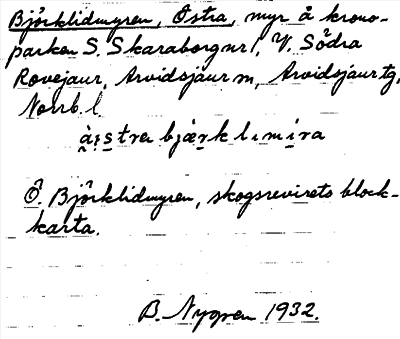 Björklidmyren, Östra, myr å krono-
parken S. Skaraborg nr 1, V. Södra
Rovejaur, Arvidsjaur sn, Arvidsjaur tg,
Norrb. l.
bjærklımíra
Ö. Björklidmyren, skogsrevirets block-
karta.
B. Nygren 1932.